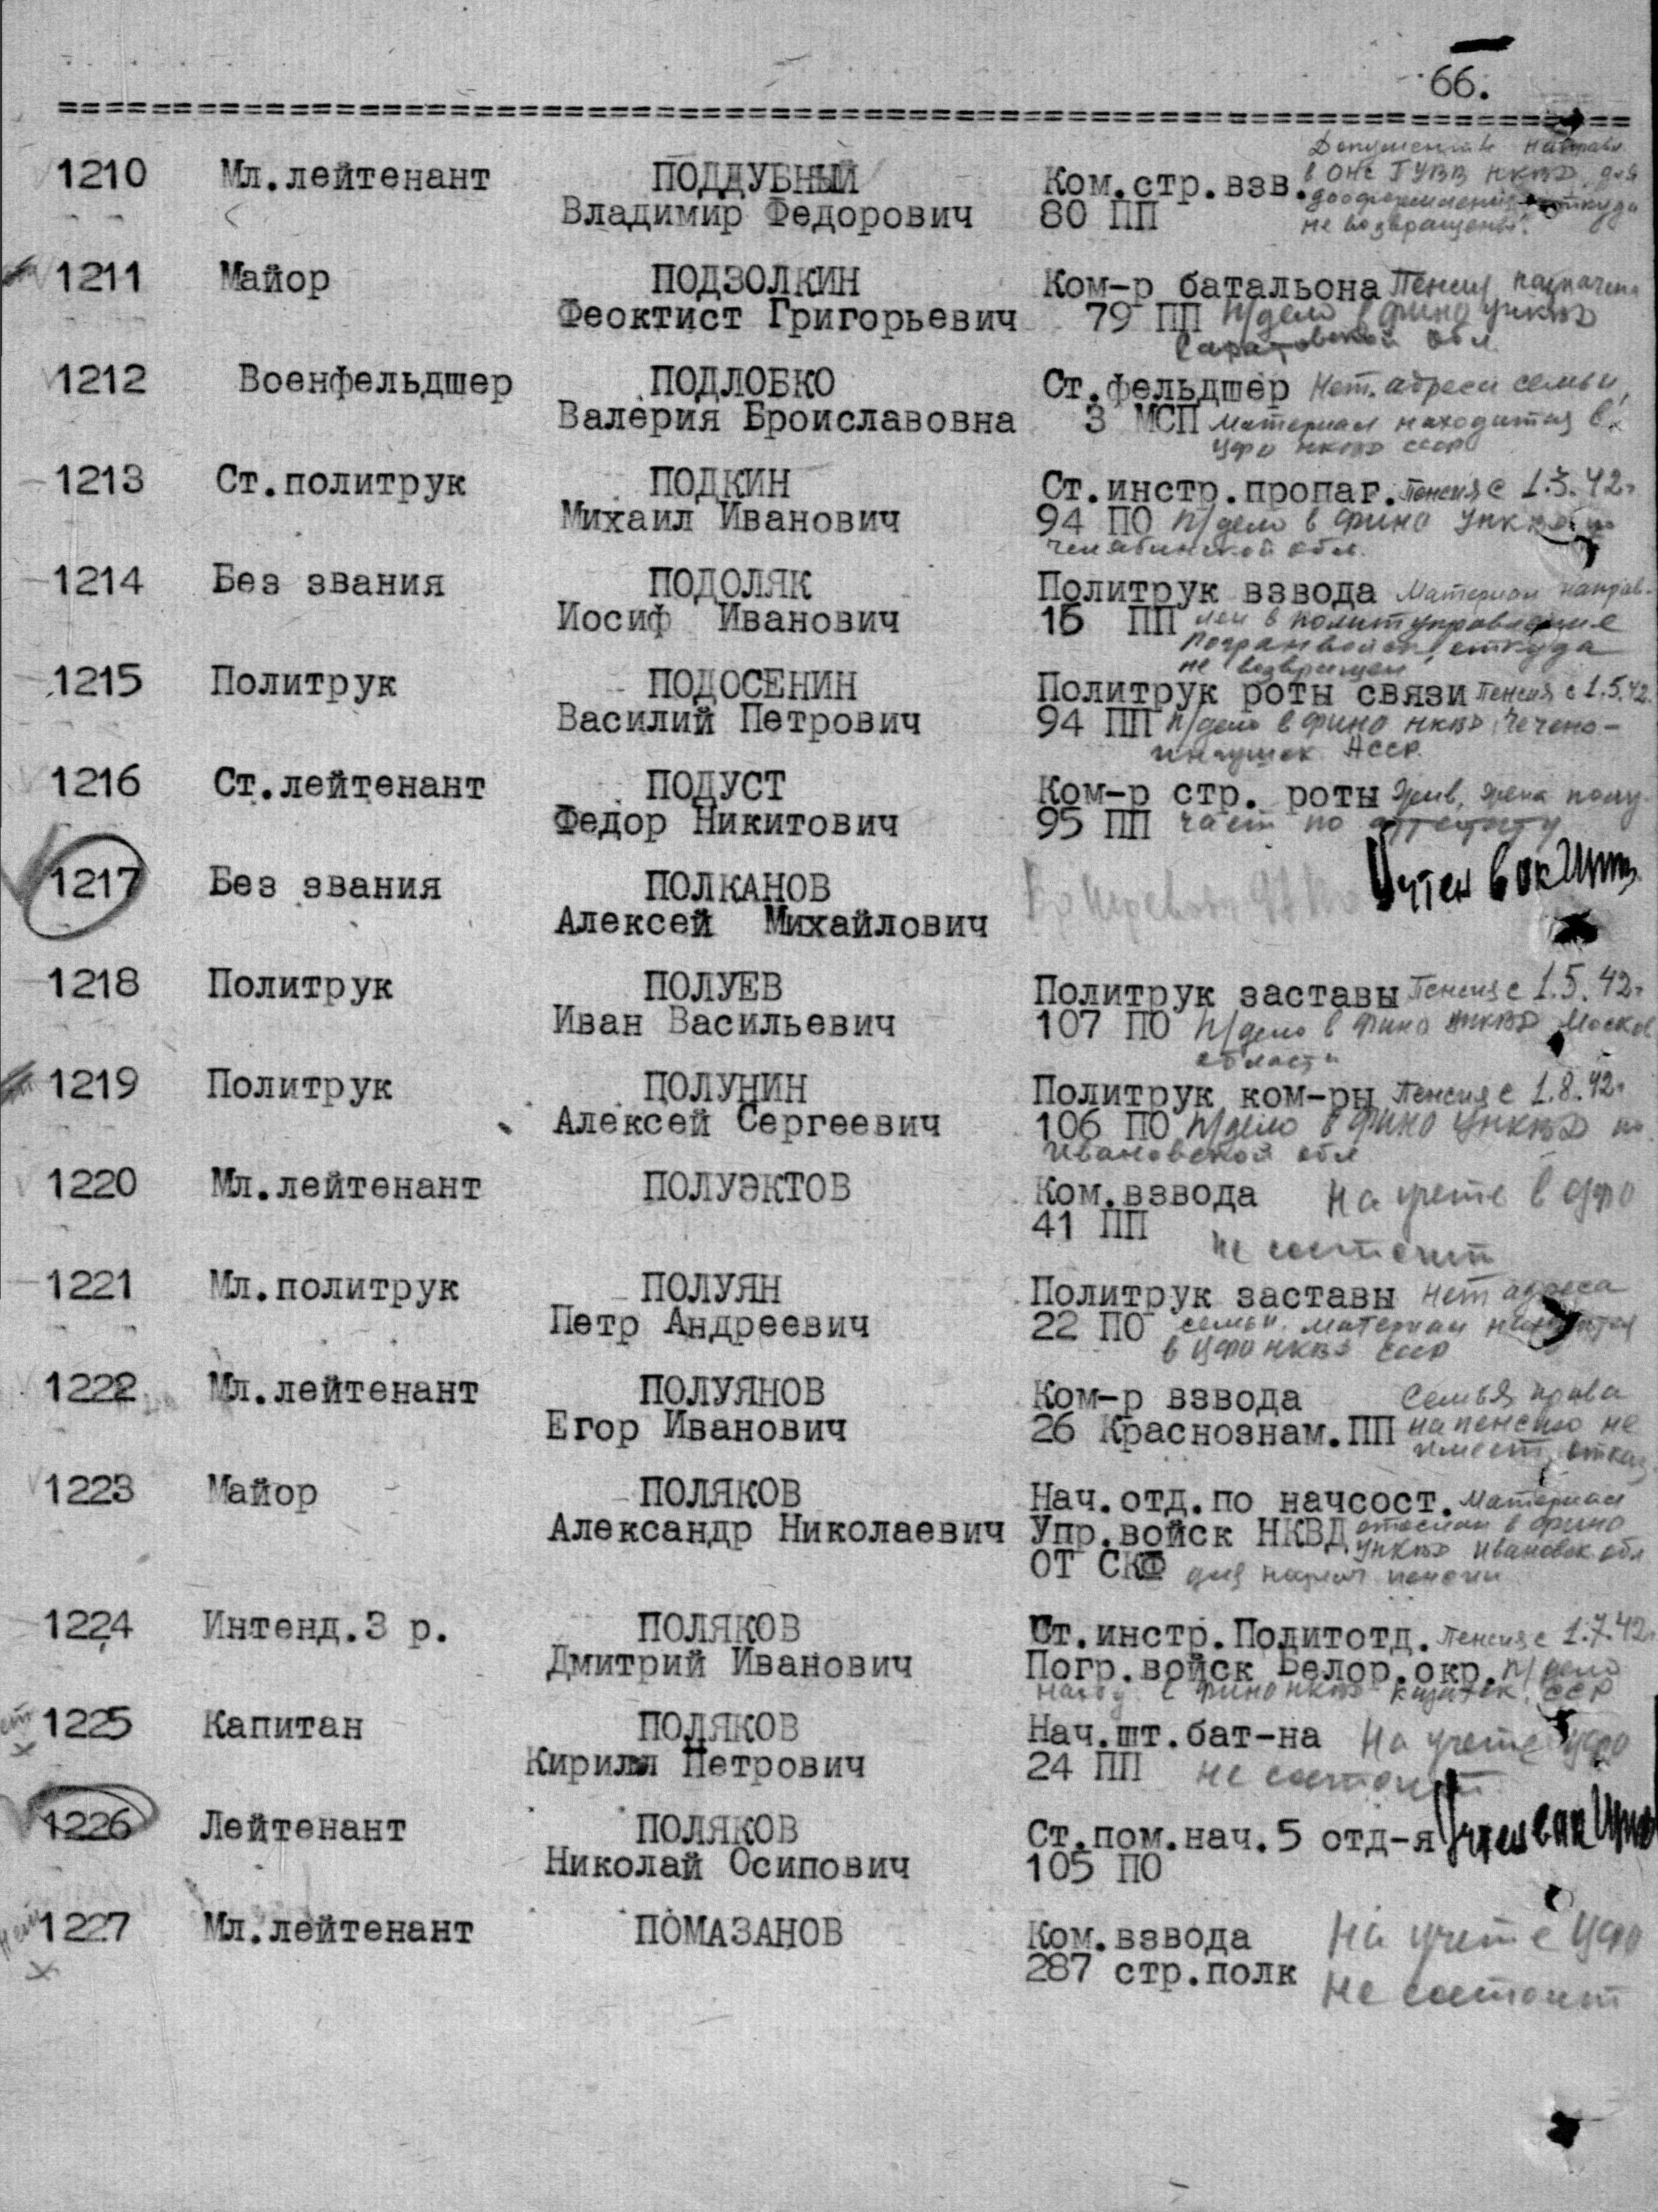 66.
1210 Мл.лейтенант ПОДДУБНЫЙ Ком.стр.взв. Документы направл.
Владимир Федорович 80 ПП в ОНС ГУВВ НКВД для
дооформления откуда
не возвращены.
1211 Майор ПОДЗОЛКИН Ком-р батальона Пенсия назначена
Феоктист Григорьевич 79 ПП п/дело в фино УНКВД
Саратовской обл.
1212 Военфельдшер ПОДЛОБКО Ст.фельдшер Нет адреса семьи,
Валерия Броиславовна 3 МСП материал находится в
ЦФО НКВД СССР
1213 Ст.политрук ПОДКИН Ст.инстр.пропаг. Пенсия с 1.5.42г
Михаил Иванович 94 ПО п/дело в фино УНКВД по
Челябинской обл.
1214 Без звания ПОДОЛЯК Политрук взвода Материал направ-
Иосиф Иванович 15 ПП лен в политуправление
погранвойск откуда
не возвращен
1215 Политрук ПОДОСЕНИН Политрук роты связи Пенсия с 1.5.42.
Василий Петрович 94 ПП п/дело в фино НКВД Чечено-
ингушск АССР.
1216 Ст.лейтенант ПОДУСТ Ком-р стр. роты Жив, жена полу-
Федор Никитович 95 ПП чает по аттестату
1217 Без звания ПОЛКАНОВ Учтен в ок
Алексей Михайлович
1218 Политрук ПОЛУЕВ Политрук заставы Пенсия с 1.5.42г
Иван Васильевич 107 ПО п/дело в фино УНКВД Москов
области
1219 Политрук ПОЛУНИН Политрук ком-ры Пенсия с 1.8.42г
Алексей Сергеевич 106 ПО п/дело в фино УНКВД по
Ивановской обл
1220 Мл.лейтенант ПОЛУЭКТОВ Ком.взвода На учете в ЦФО
41 ПП не состоит
1221 Мл.политрук ПОЛУЯН Политрук заставы Нет адреса
Петр Андреевич 22 ПО семьи. материал находится
в ЦФО НКВД СССР
1222 Мл.лейтенант ПОЛУЯНОВ Ком-р взвода Семья права
Егор Иванович 26 Краснознам.ПП на пенсию не
имеет, отказ
1223 Майор ПОЛЯКОВ Нач.отд.по начсост. Материал
Александр Николаевич Упр.войск НКВД отослан в фино
УНКВД Ивановск. обл
ОТ СКФ для назнач пенсии
1224 Интенд.3 р. ПОЛЯКОВ Ст.инстр.Политотд. Пенсия с 1.7.42г
Дмитрий Иванович Погр.войск Белор.окр. п/дело
наход. в фино НКВД Казахск. ССР
1225 Капитан ПОЛЯКОВ Нач.шт.бат-на На учете ЦФО
Кирилл Петрович 24 ПП не состоит
1226 Лейтенант ПОЛЯКОВ Ст.пом.нач.5 отд-я Учтен в ок
Николай Осипович 105 ПО
1227 Мл.лейтенант ПОМАЗАНОВ Ком.взвода На учете ЦФО
287 стр.полк не состоит